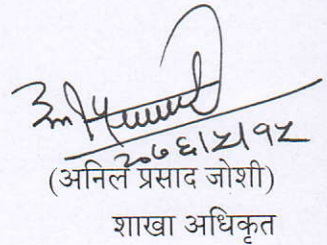 २०७६।८।१८
(अनिल प्रसाद जोशी)
शाखा अधिकृत